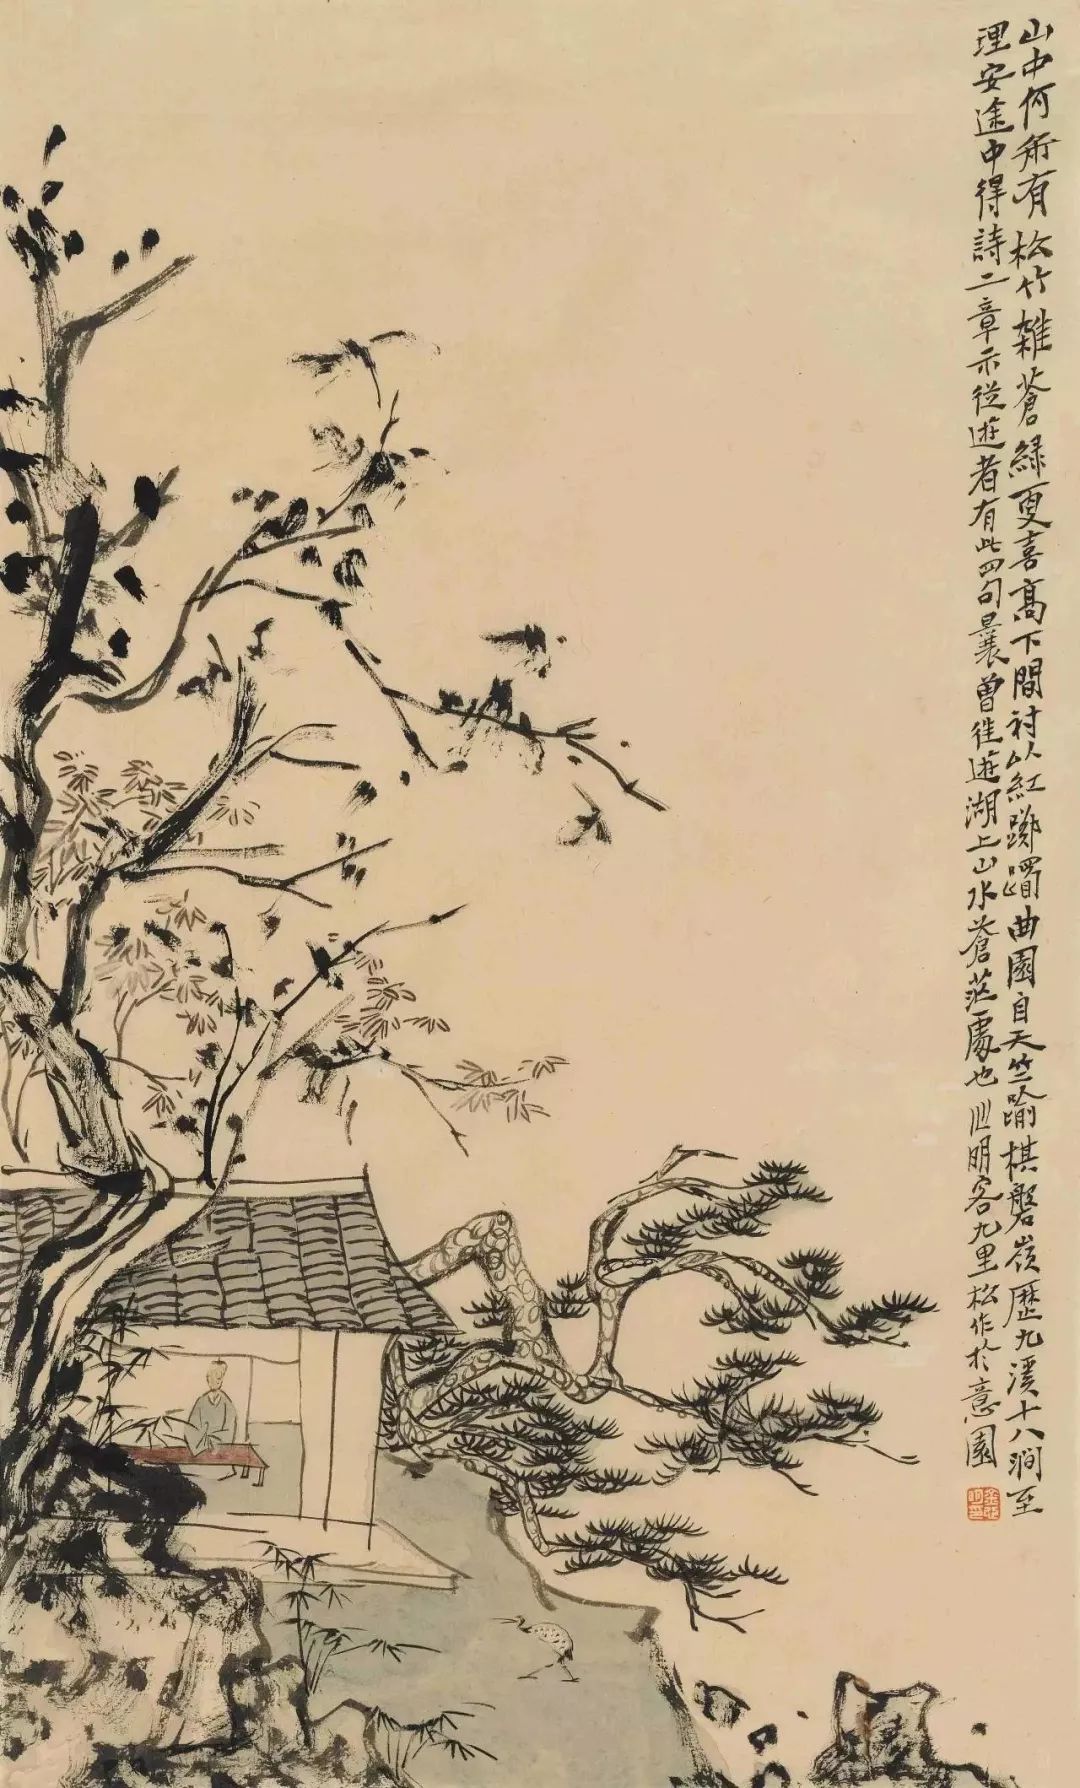 山中何所有松竹雜蒼綠更喜高下間衬以紅躑躅曲園自天竺踰棋磐嶺歷九溪十八澗至
理安途中得詩二章示從遊者有此四句曩曾往遊湖上山水蒼茫處也心明客九里松作於意園
金心明印